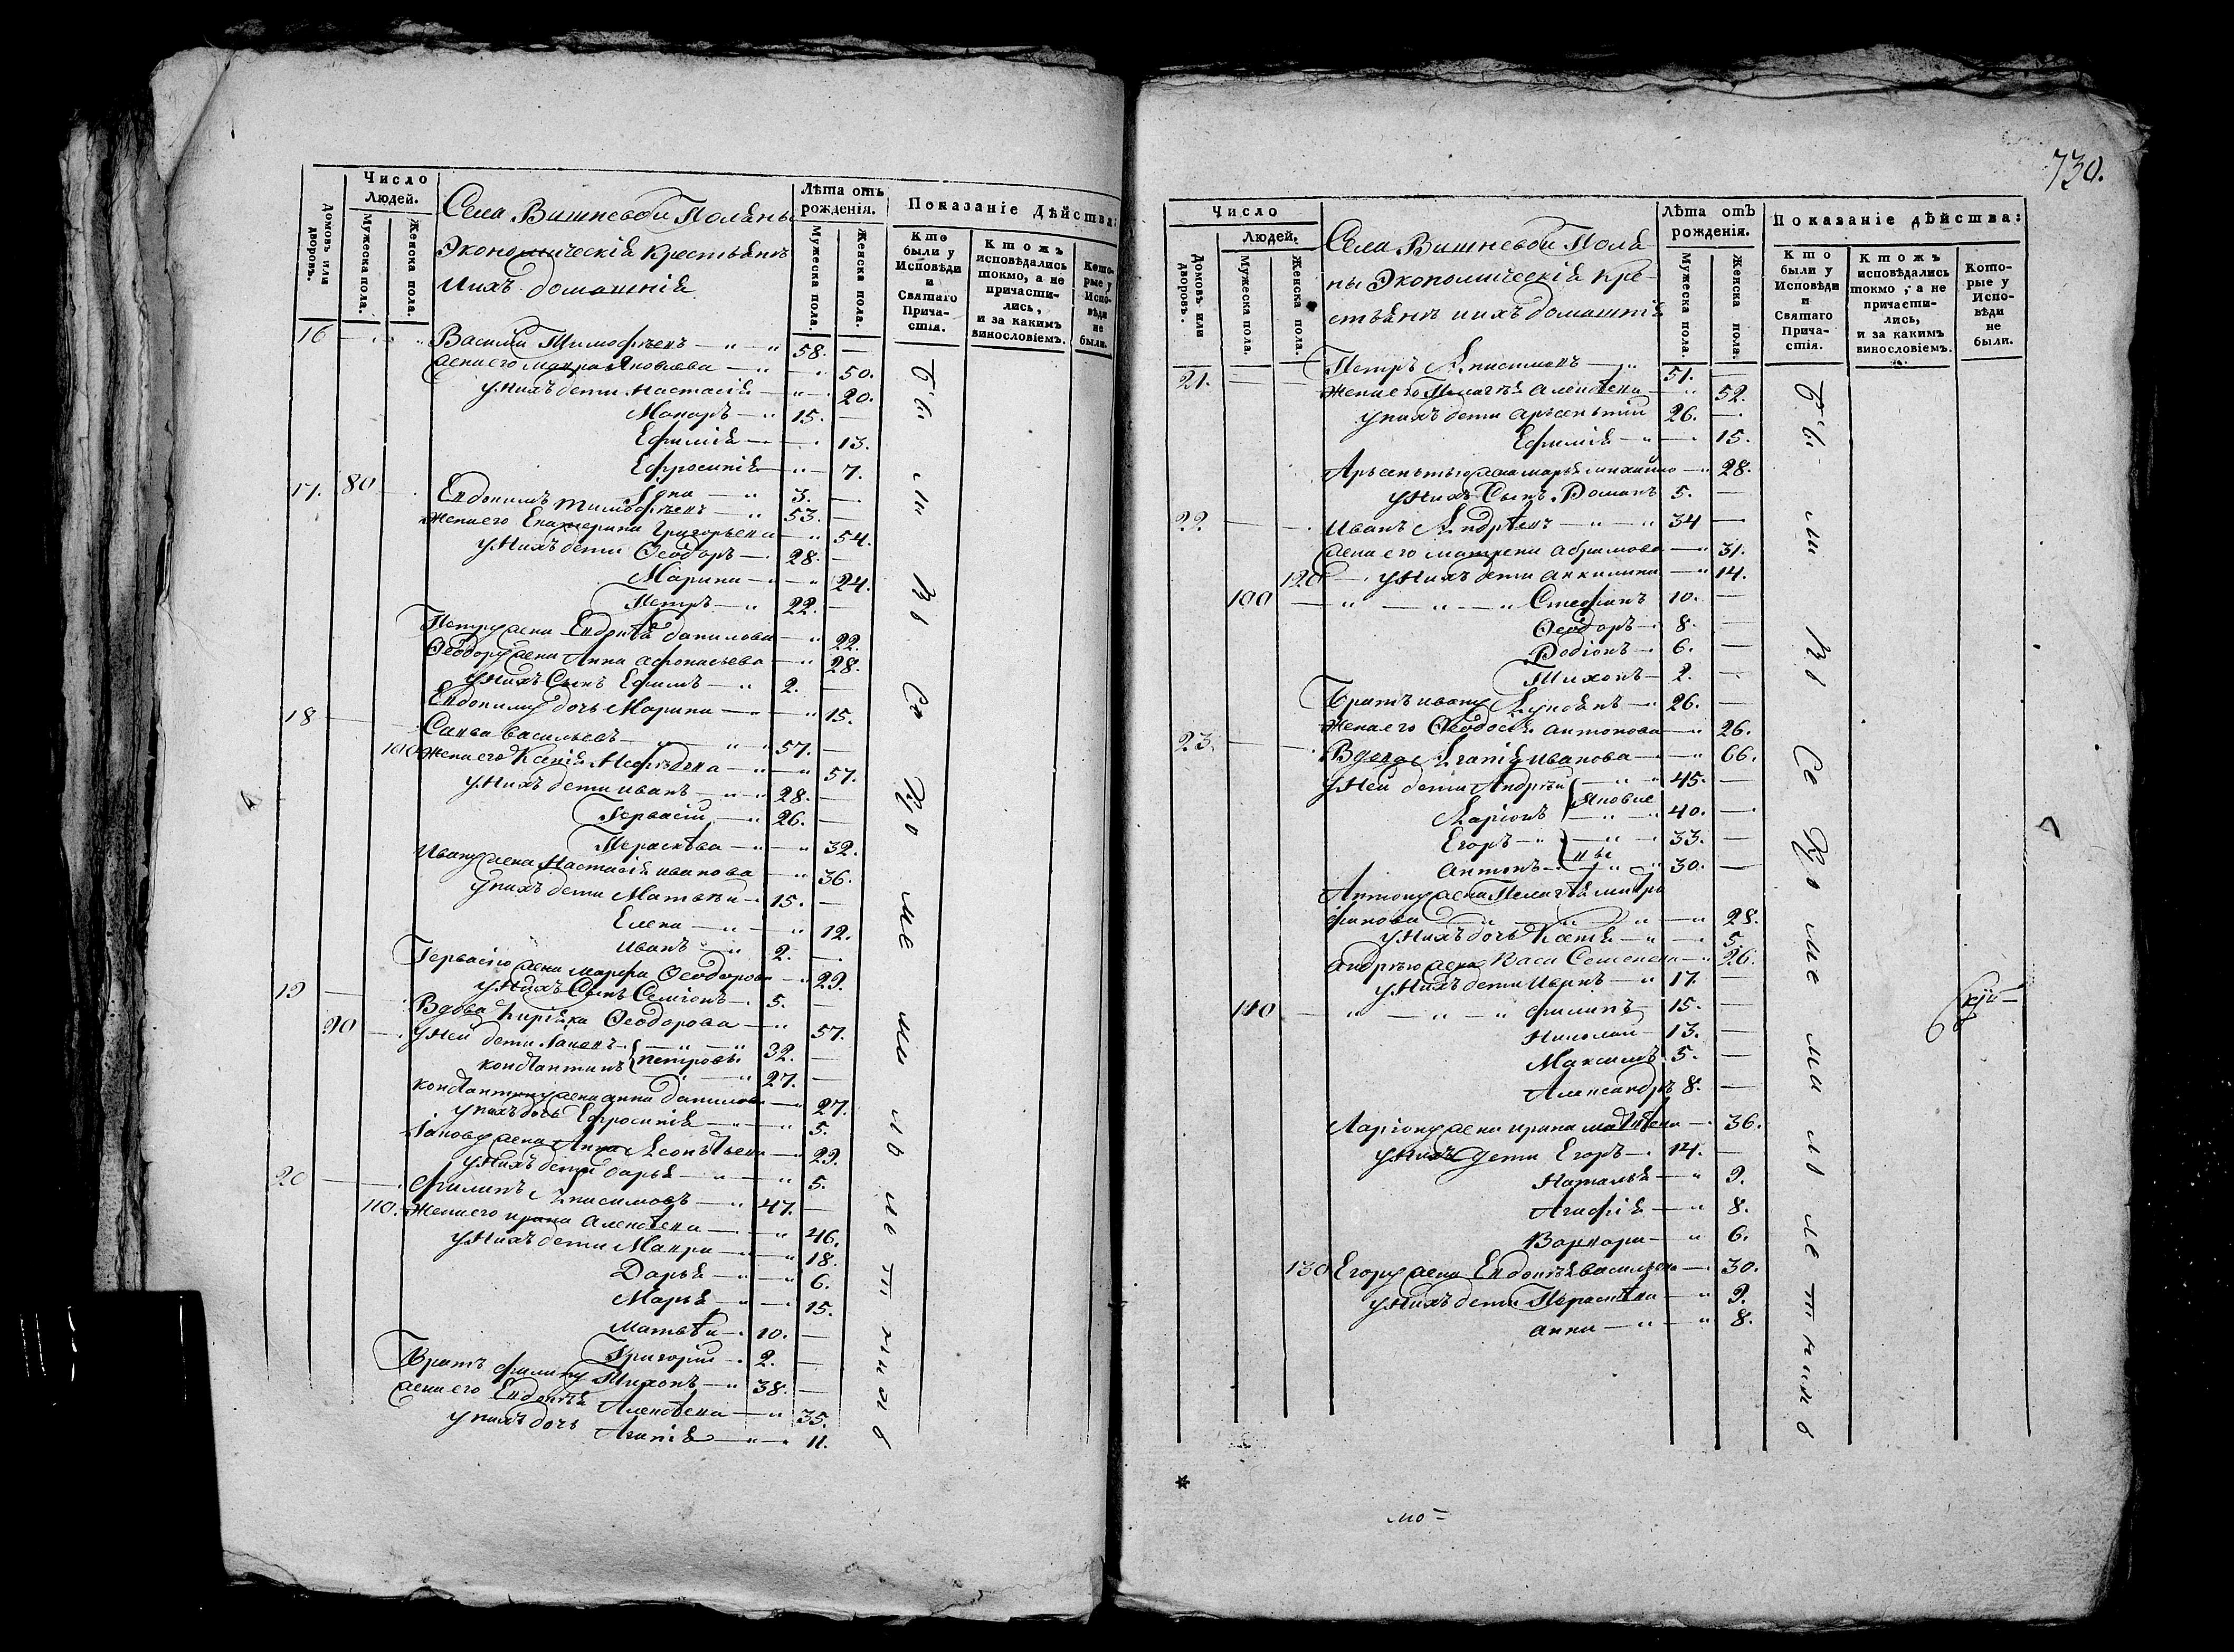 Число Людей.
Домовъ или дворовъ.
Мужеска пола.
Женска пола.
Села Вишневой Поляны
Экономическія Крестьянѣ
ихъ домашнія
Лѣта отъ рожденія.
Мужеска пола.
Женска пола.
Показаніе Дѣйства:
Кто были у Исповѣди и Святаго Прича-стія.
Ктожъ исповѣдались токмо, а не причасти-лись, и за какимъ винословіемъ.
Кото-рые у Испо-вѣди не были.
16 — Василій Тимофѣевъ — 58. —
жена его Макра Яковлева — 50.
у нихъ дети Настасія — 20.
Макаръ — 15. —
Ефимія — 13.
Ефросинія — 7.
3. —
17. 80 Евдокимъ Тимофѣевъ — 53. —
жена его Екатерина Григорьева — 54.
у нихъ дети Ѳеодоръ — 28. —
Марина — 24.
Петръ — 22. —
Петру жена Евдокѣя Данилова — 22.
Ѳеодору жена Анна Афонасьева — 28.
у нихъ сынъ Ефимъ — 2. —
Евдокиму дочь Марина — 15.
18 — Савва Васильевъ — 57. —
100 жена его Ксенія Мефодева — 57.
у нихъ дети Иванъ — 28. —
Гервасій — 26. —
Параскѣва — 32.
Ивану жена Настасія Иванова — 36.
у нихъ дети Матвѣй — 15. —
Елена — 12.
Иванъ — 2. —
Гервасію жена Марфа Ѳеодорова — 29.
у нихъ сынъ Семіонъ — 5. —
19 — Вдова Киріяка Ѳеодорова — 57.
90 у ней дети Іаковъ 32. —
Константинъ } Петровы 27. —
Константину жена Анна Данилова — 27.
у нихъ дочь Ефросинія — 5.
Іакову жена Анна Леонтьева — 29.
у нихъ дети Дарья — 5.
20 — Филипъ Анисимовъ — 47. —
110. жена его Ирина Алексѣева — 46.
у нихъ дети Макри — 18.
Дарья — 6.
Марья — 15.
Матвѣй — 10. —
Григорій — 2. —
Братъ Филипу Тихонъ — 38. —
жена его Евдокѣя Алексѣева — 35.
у нихъ дочь Агапія — 11.
730.
Число Людей.
Домовъ или дворовъ.
Мужеска пола.
Женска пола.
Села Вишневой Поля
ны Экономическія Кре-
стьянѣ ихъ домашнія
Лѣта отъ рожденія.
Мужеска пола.
Женска пола.
Показаніе дѣйства:
Кто были у Исповѣди и Святаго Прича-стія.
Ктожъ исповѣдались токмо, а не причасти-лись, и за какимъ винословіемъ.
Кото-рые у Испо-вѣди не были.
21. — Петръ Анисимовъ — 51. —
жена его Пелагѣя Алексѣева — 52.
у нихъ дети Арсентій 26. —
Ефимія — 15.
Арсентью жена Марья Михайло — 28.
у нихъ сынъ Романъ 5. —
22. — Иванъ Андрѣевъ — 34 —
жена его Матрена Абрамова — 31.
120 у нихъ дети Акилина — 14.
100 — Стефанъ 10. —
Ѳеодоръ — 8. —
Родіонъ — 6. —
Тихонъ — 2. —
Братъ Ивану Лукьянъ — 26. —
жена его Ѳеодосія Антонова — 26.
23. — Вдова Агапія Иванова — 66.
у ней дети Андрѣй 45. —
Ларіонъ } Яковле 40. —
Егоръ 33. —
Антонъ } вы 30. —
Антону жена Пелагѣя Митро
фанова — 28.
у нихъ дочь — 5.
Андрѣю жена Васа Семенова — 26.
у нихъ дети Иванъ — 17. —
110 — Филипъ 15. —
Николай — 13. —
Максимъ 5. —
Александръ 8. —
Ларіону жена Ирина Матвѣева — 36.
у нихъ дети Егоръ — 14. —
Наталья — 9.
Агафія — 8.
Варвара — 6.
130 Егору жена Евдокѣя Васильева — 30.
у нихъ дети Параскѣва — 9.
Анна — 8.
*
мо-